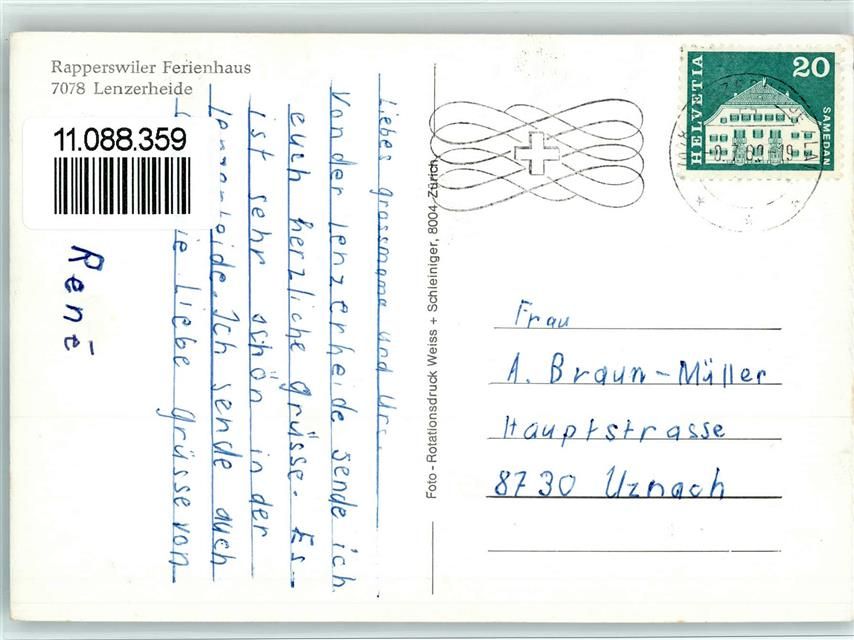 Rapperswiler Ferienhaus
7078 Lenzerheide
11.088.359
Liebes Grossmama und Urs.
Von der Lenzerheide sende ich
euch herzliche Grüsse. Es
ist sehr schön in der
Ich sende auch
ie Liebe Grüsse von
René
Foto - Rotationsdruck Weiss + Schleiniger, 8004 Zürich
HELVETIA
20
SAMEDAN
Frau
A. Braun-Müller
Hauptstrasse
8730 Uznach